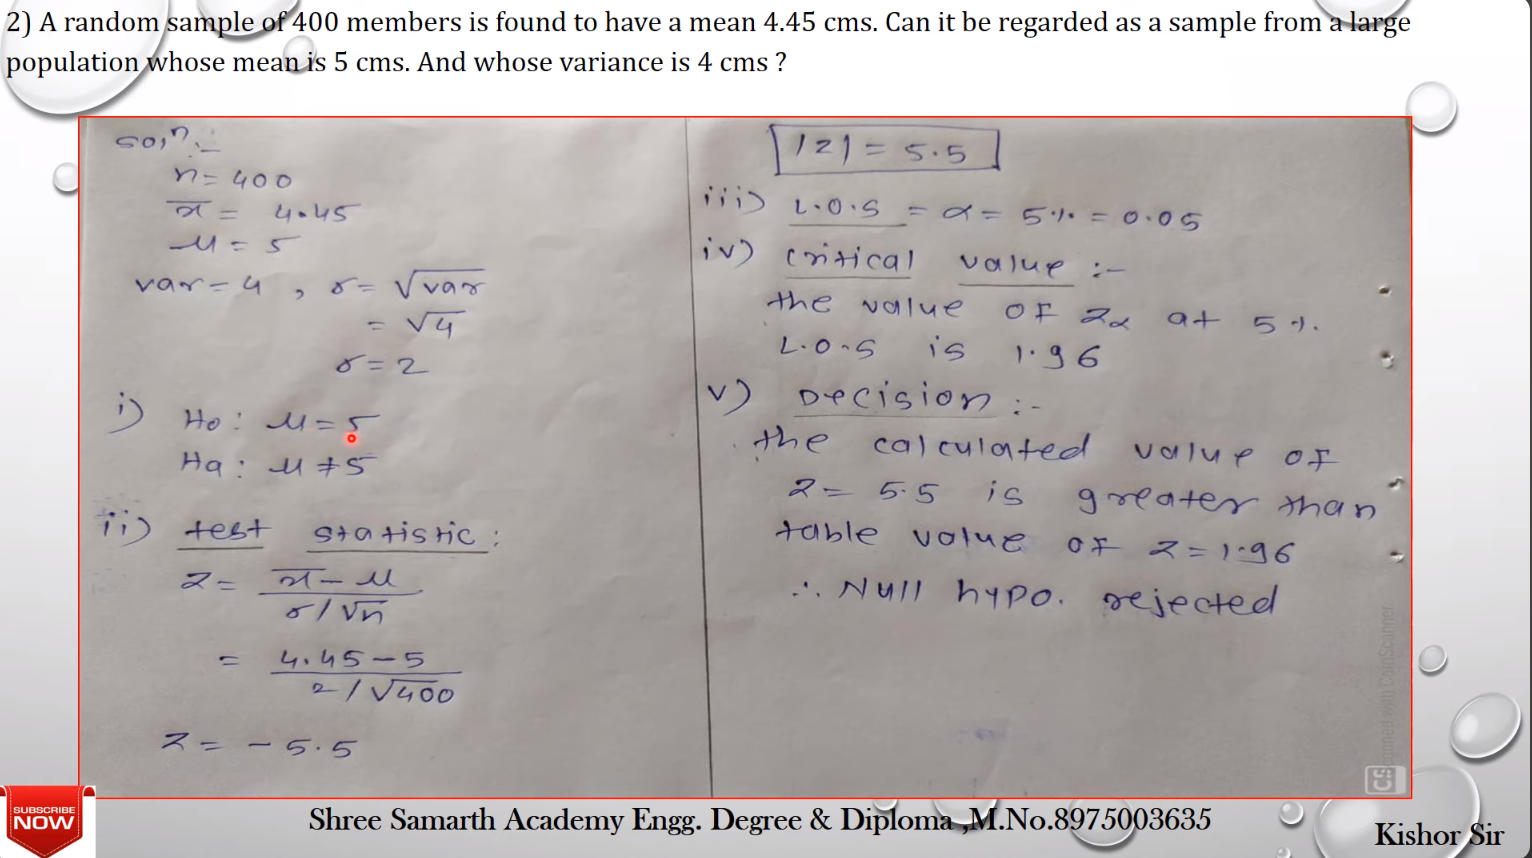 2) A random sample of 400 members is found to have a mean 4.45 cms. Can it be regarded as a sample from a large
population whose mean is 5 cms. And whose variance is 4 cms ?
soln :-
n = 400
x̄ = 4.45
μ = 5
var = 4 , σ = √var
= √4
σ = 2
i) Ho : μ = 5
Ha : μ ≠ 5
ii) test statistic :
z = x̄ - μ / σ/√n
= 4.45 - 5 / 2/√400
z = - 5.5
|z| = 5.5
iii) L.O.S = α = 5% = 0.05
iv) critical value :-
the value of zα at 5%
L.O.S is 1.96
v) Decision :-
the calculated value of
z = 5.5 is greater than
table value of z = 1.96
∴ Null hypo. rejected
CS
Scanned with CamScanner
SUBSCRIBE
NOW
Shree Samarth Academy Engg. Degree & Diploma ,M.No.8975003635
Kishor Sir